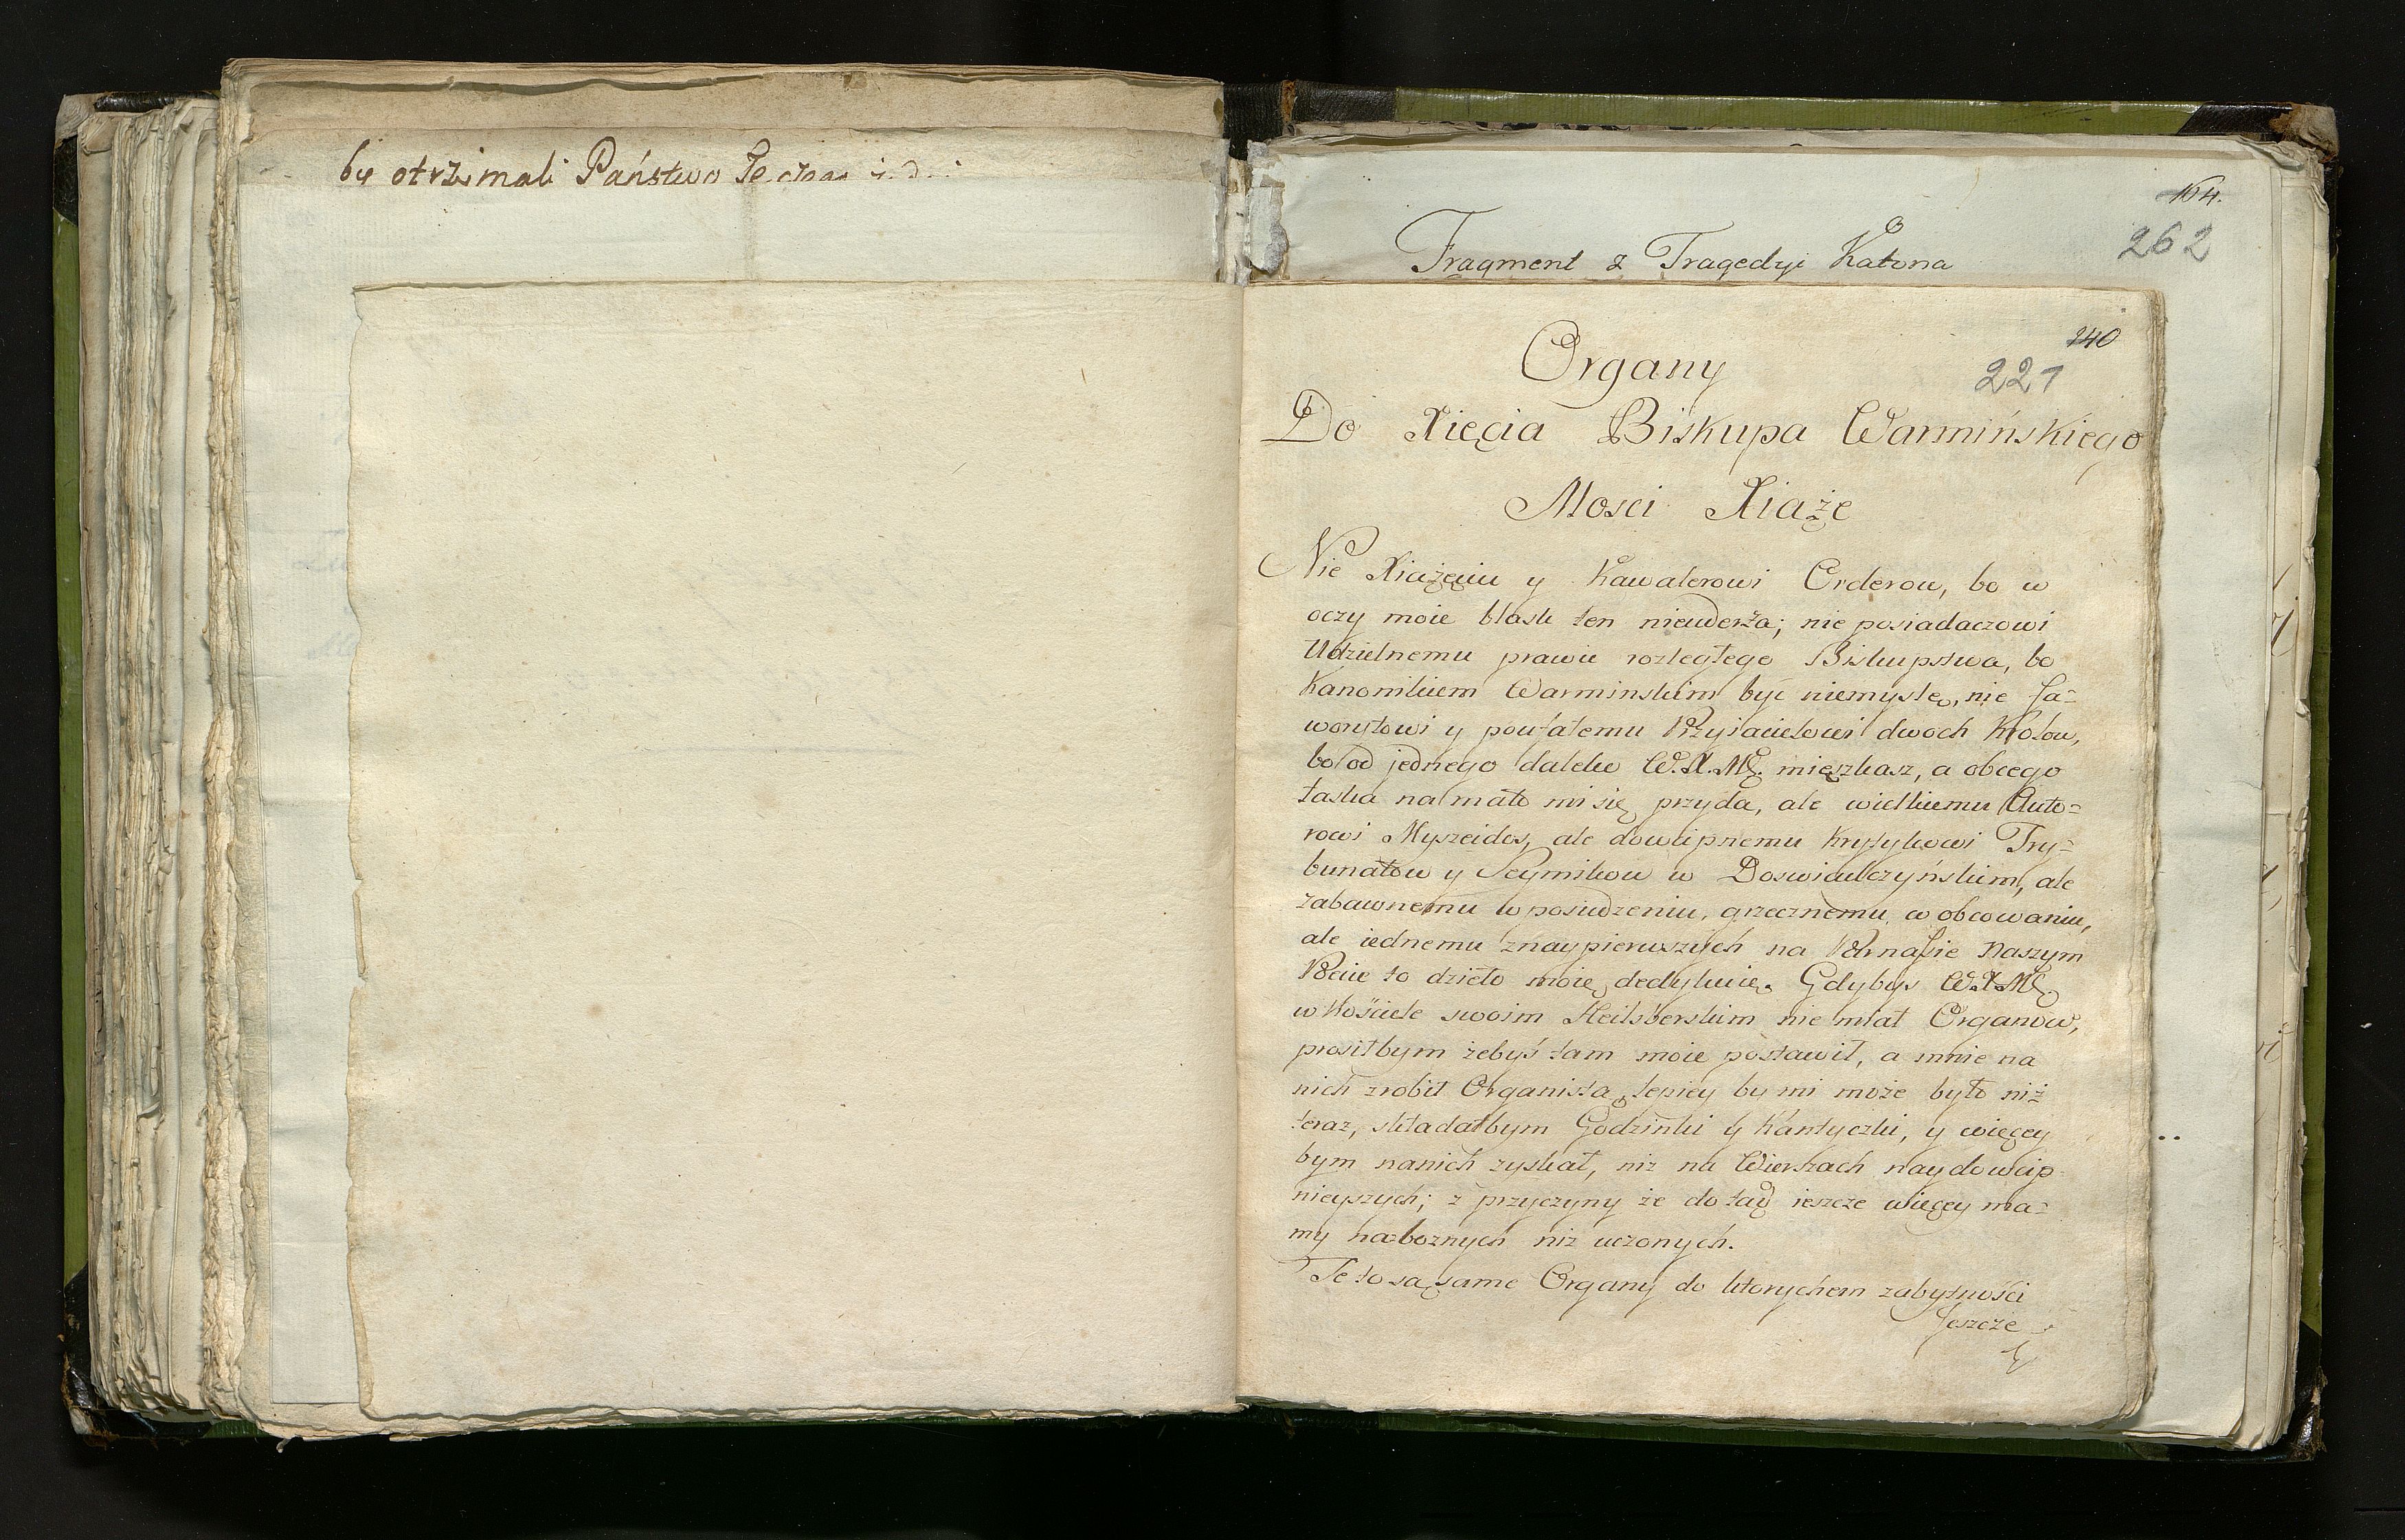 by otrzimali Państwo
164.
262
Fragment z Tragedyi Katona
240
221
Organy
Do Xięcia Biskupa Warmińskiego
Mosci Xiąże
Nie Xiążęciu y Kawalerowi Orderow, bo w
oczy moie blask ten nieuderza; nie posiadaczowi
Udzielnemu prawie rozległego Biskupstwa, bo
Kanonikiem Warminskim być niemyslę, nie fa=
worytowi y poufałemu Przyiacielowi dwoch Krolow,
bo od jednego daleko W.X.Mć. mięszkasz, a obcego
łaska na mało mi się przyda, ale wielkiemu Auto=
rowi Myszeidos, ale dowcipnemu Krytykowi Try=
bunałow y Seymikow w Doswiadczyńskim, ale
zabawnemu w posiedzeniu, grzecznemu w obcowaniu,
ale iednemu znaypierwszych na Parnasie Naszym
Poecie to dzieło moie dedykuię. Gdybys W.X.Mć.
w Kościele swoim Heilsberskim nie miał Organow,
prosiłbym żebyś tam moie postawił, a mnie na
nich zrobił Organistą, lepiey by mi może było niż
teraz, składałbym Godzinki y Kantyczki, y więcey
bym nanich zyskał, niz na Wierszach naydowcip=
nieyszych; z przyczyny że do tąd ieszcze więcey ma=
my nabożnych niż uczonych.
Te to są same Organy do ktorychem zabytności
Jeszcze